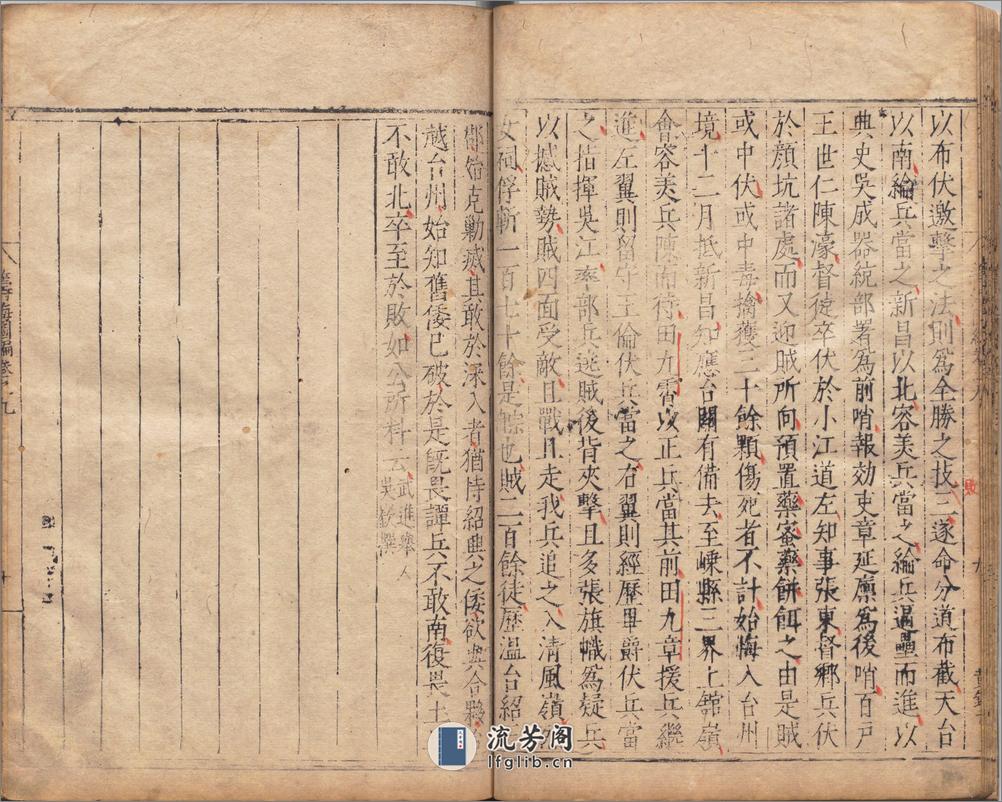 以布伏邀擊之法則爲全勝之技三遂命分道布截天台
以南綸兵當之新昌以北容美兵當之綸兵逼壘而進以
典史吳成器統部署爲前哨報効吏章延廪爲後哨百戶
王世仁陳濠督徒卒伏於小江道左知事張東督鄉兵伏
於顔坑諸處而又迎賊所向預置藥蜜藥餅餌之由是賊
或中伏或中毒擒獲三十餘顆傷死者不計始悔入台州
境十二月抵新昌知應台關有備去至嵊縣三界上館嶺
會容美兵陳而待田九霄以正兵當其前田九章援兵繼
進左翼則留守王倫伏兵當之右翼則經歷畢爵伏兵當
之指揮吳江率部兵逃賊後背夾擊且多張旗幟爲疑兵
以撼賊勢賊四面受敵且戰且走我兵追之入清風嶺
俘斬一百七十餘是餘也賊二百餘徒歷溫台紹
克勦滅其敢於深入者猶恃紹興之倭欲與合夥
越台州始知舊倭已破於是旣畏譚兵不敢南復畏土
不敢北卒至於敗如公所料云武進舉人
吳欽撰
籌海圖編卷之九
敗
流芳阁
lfglib.cn